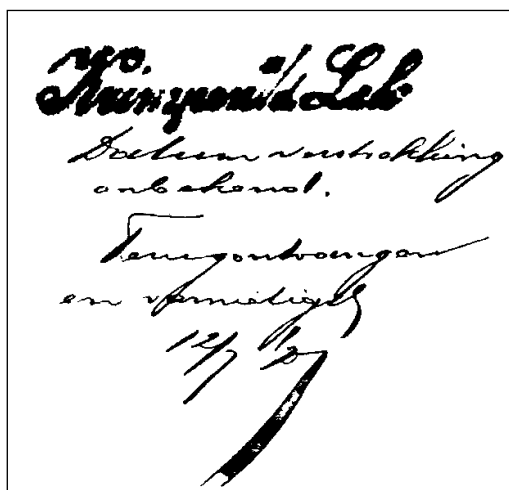 Krimpen a/d Lek
Datum verstrekking
onbekend.
Terugontvangen
en vernietigd
12/7